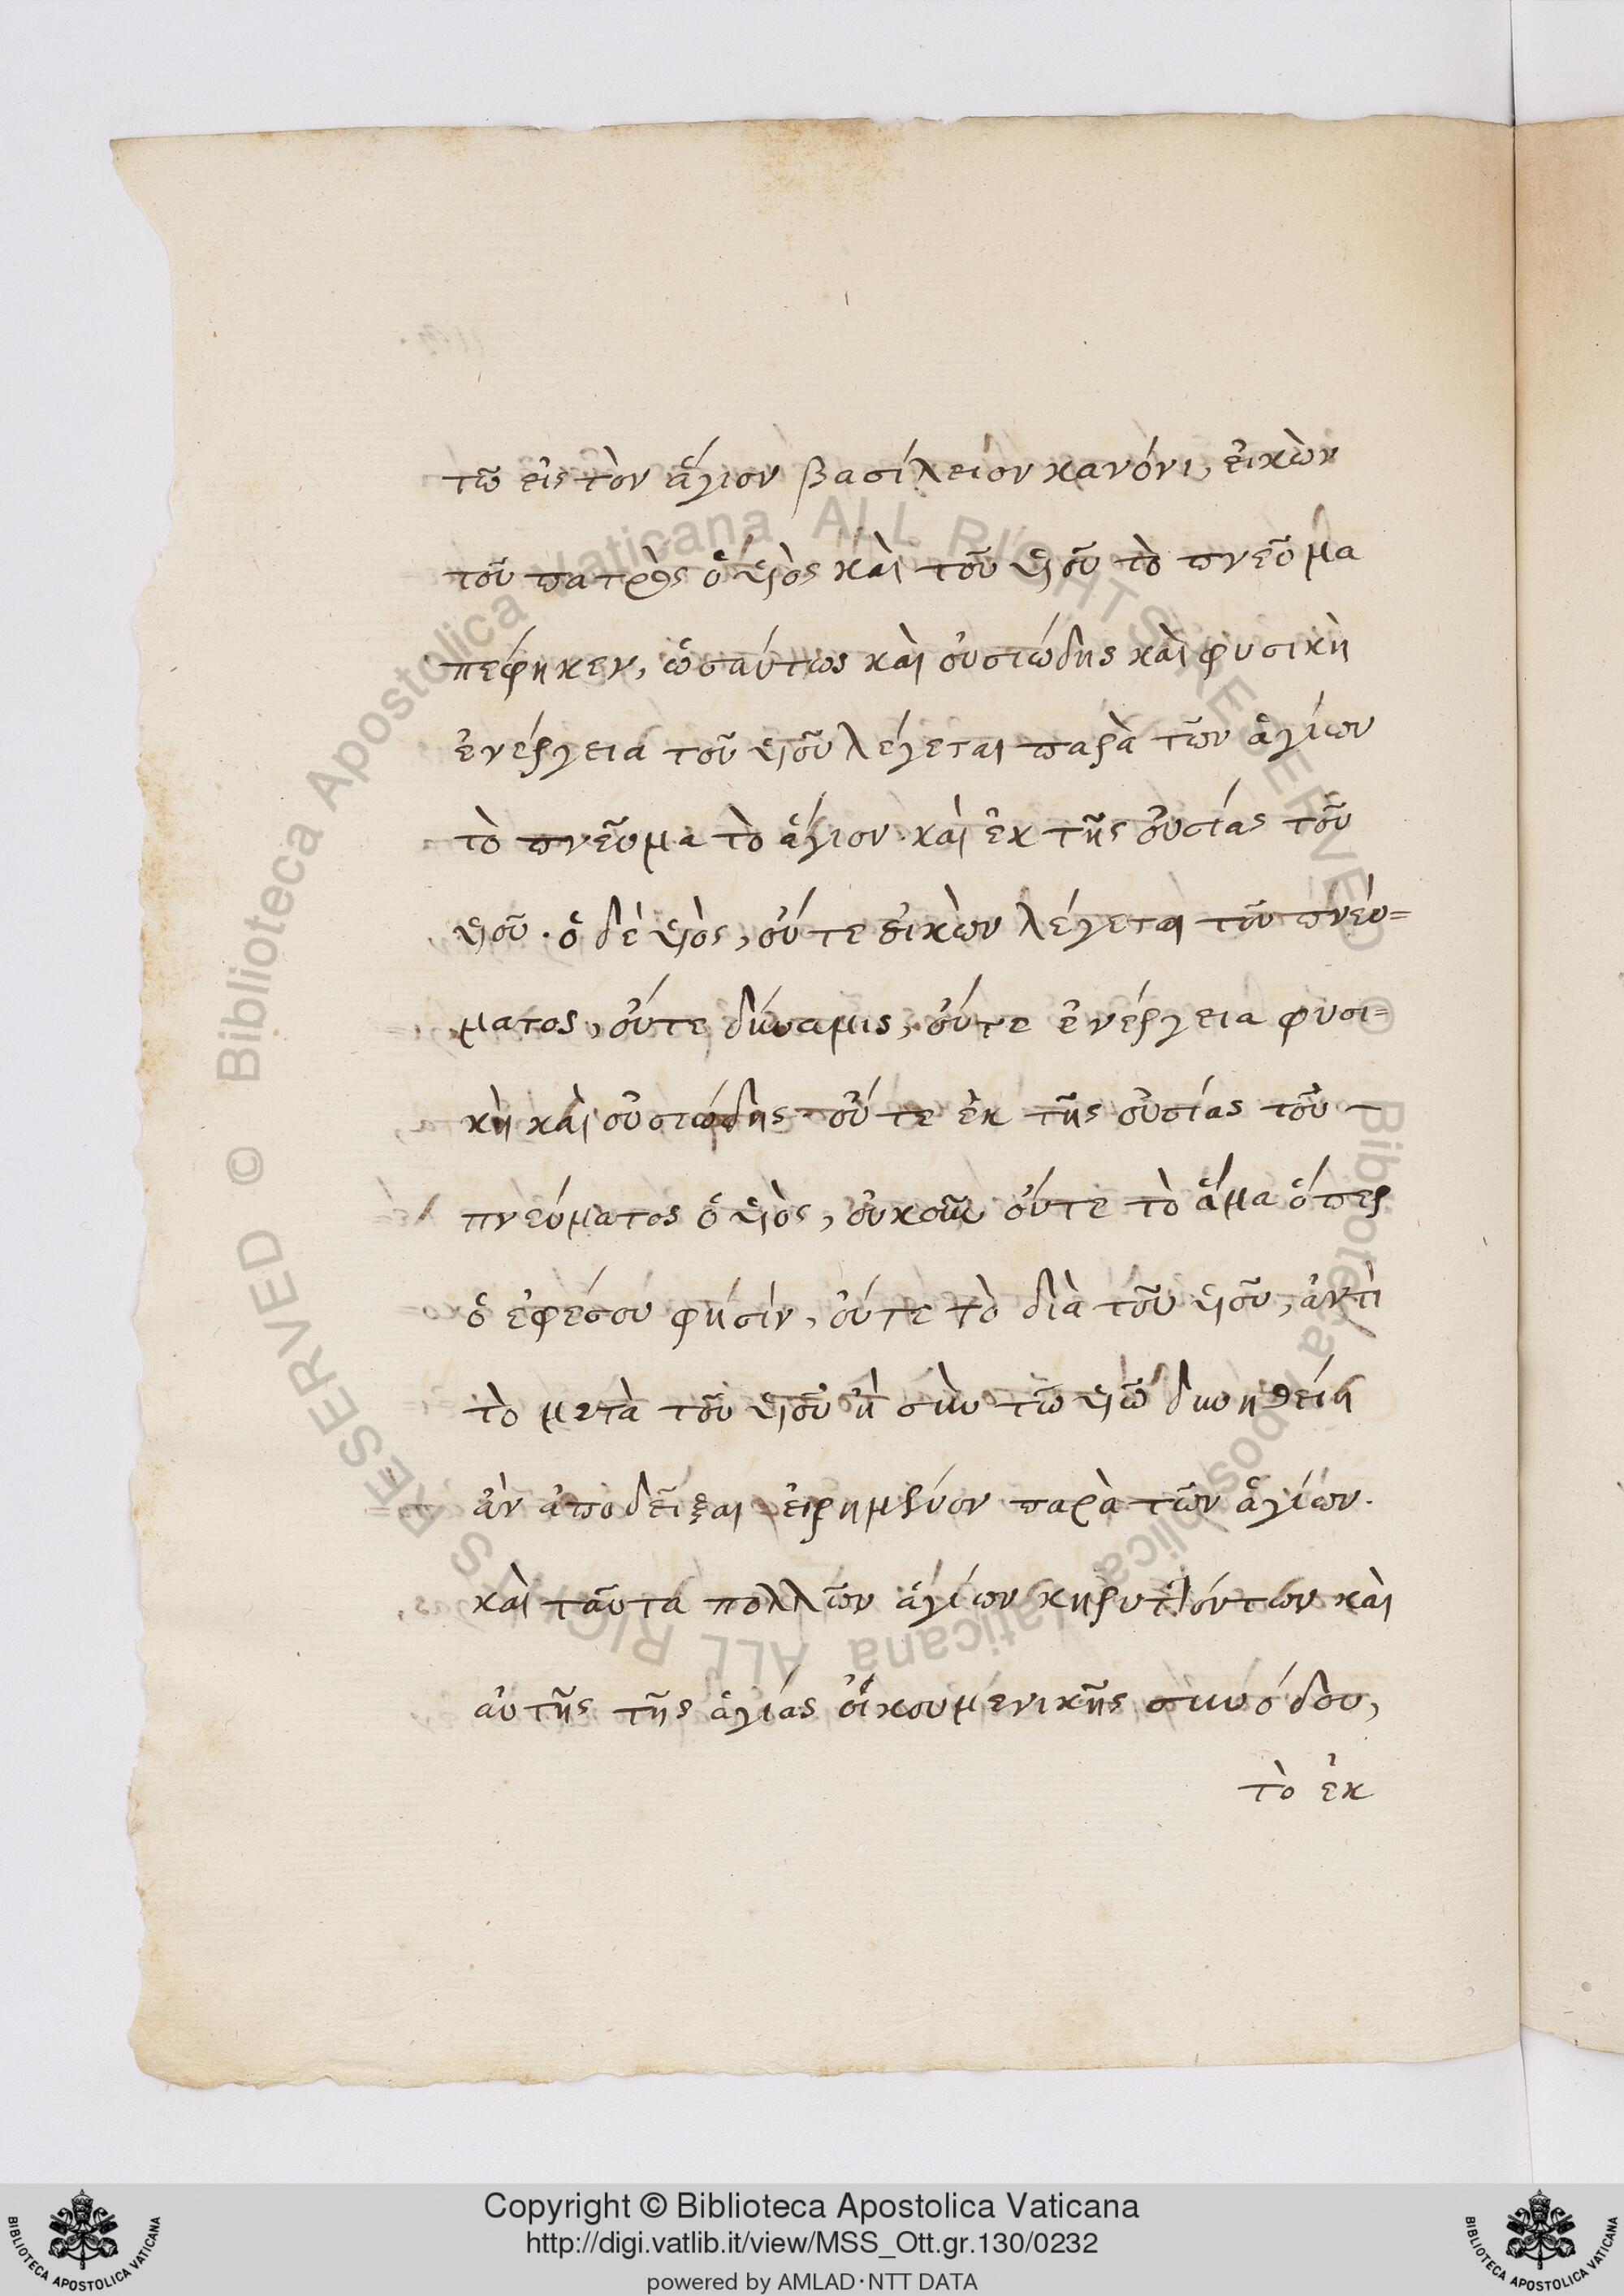 τῶ εἰς τὸν ἅγιον βασίλειον κανόνι, εἰκὼν
τοῦ πατρὸς ὁ υἱὸς καὶ τοῦ υἱοῦ τὸ πνεῦμα
πεφηκεν, ὡσαύτως καὶ οὐσιώδης καὶ φυσικὴ
ἐνέργεια τοῦ υἱοῦ λέγεται παρὰ τῶν ἁγίων
τὸ πνεῦμα τὸ ἅγιον. καὶ ἐκ τῆς οὐσίας τοῦ
υἱοῦ. ὁ δὲ υἱὸς, οὔτε εἰκὼν λέγεται τοῦ πνεύ=
ματος, οὔτε δύναμις, οὔτε ἐνέργεια φυσι=
κὴ καὶ οὐσιώδης οὔτε ἐκ τῆς οὐσίας τοῦ
πνεύματος ὁ υἱὸς, οὐκοῦν οὔτε τὸ ἅμα ὅπερ
ὁ ἐφέσου φήσὶν, οὔτε τὸ διὰ τοῦ υἱοῦ, ἀντὶ
τὸ μετὰ τοῦ υἱοῦ ἢ σὺν τῶ υἱῶ δυνηθείη
ἂν ἀποδεῖξαι εἰρημένον παρὰ τῶν ἁγίων.
καὶ ταῦτα πολλῶν ἁγίων κηρυττόντων καὶ
αὐτῆς τῆς ἁγίας οἰκουμενικῆς συνόδου,
τὸ ἐκ
Copyright © Biblioteca Apostolica Vaticana
http://digi.vatlib.it/view/MSS_Ott.gr.130/0232
powered by AMLAD·NTT DATA
BIBLIOTECA APOSTOLICA VATICANA
BIBLIOTECA APOSTOLICA VATICANA
© Biblioteca Apostolica Vaticana ALL RIGHTS RESERVED
© Biblioteca Apostolica Vaticana ALL RIGHTS RESERVED